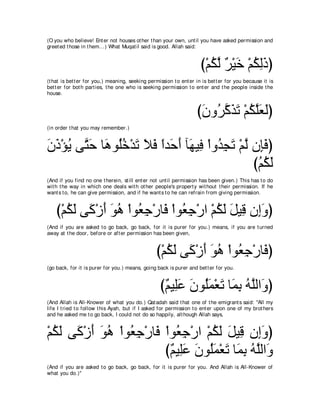 (O you who believe! Enter not houses other than your own, until you have asked permission and
greeted those in them...) What Muqatil said is good. Allah said:
(ذَلِكُمْ خَيْرٌ لَّكُمْ)
(that is better for you,) meaning, seeking permission to enter in is better for you because it is
better for both parties, the one who is seeking permission to enter and the people inside the
house.
(لَعَلَّكُمْ تَذَكَّرُونَ)
(in order that you may remember.)
(فَإِن لَّمْ تَجِدُواْ فِيهَآ أَحَداً فَلاَ تَدْخُلُوهَا حَتَّى يُؤْذَنَ
لَكُمْ)
(And if you find no one therein, still enter not until permission has been given.) This has to do
with the way in which one deals with other people's property without their permission. If he
wants to, he can give permission, and if he wants to he can refrain from giving permission.
(وَإِن قِيلَ لَكُمْ ارْجِعُواْ فَارْجِعُواْ هُوَ أَزْكَى لَكُمْ)
(And if you are asked to go back, go back, for it is purer for you,) means, if you are turned
away at the door, before or after permission has been given,
(فَارْجِعُواْ هُوَ أَزْكَى لَكُمْ)
(go back, for it is purer for you.) means, going back is purer and better for you.
(وَاللَّهُ بِمَا تَعْمَلُونَ عَلِيمٌ)
(And Allah is All-Knower of what you do.) Qatadah said that one of the emigrants said: "All my
life I tried to follow this Ayah, but if I asked for permission to enter upon one of my brothers
and he asked me to go back, I could not do so happily, although Allah says,
(وَإِن قِيلَ لَكُمْ ارْجِعُواْ فَارْجِعُواْ هُوَ أَزْكَى لَكُمْ
وَاللَّهُ بِمَا تَعْمَلُونَ عَلِيمٌ)
(And if you are asked to go back, go back, for it is purer for you. And Allah is All-Knower of
what you do.)"